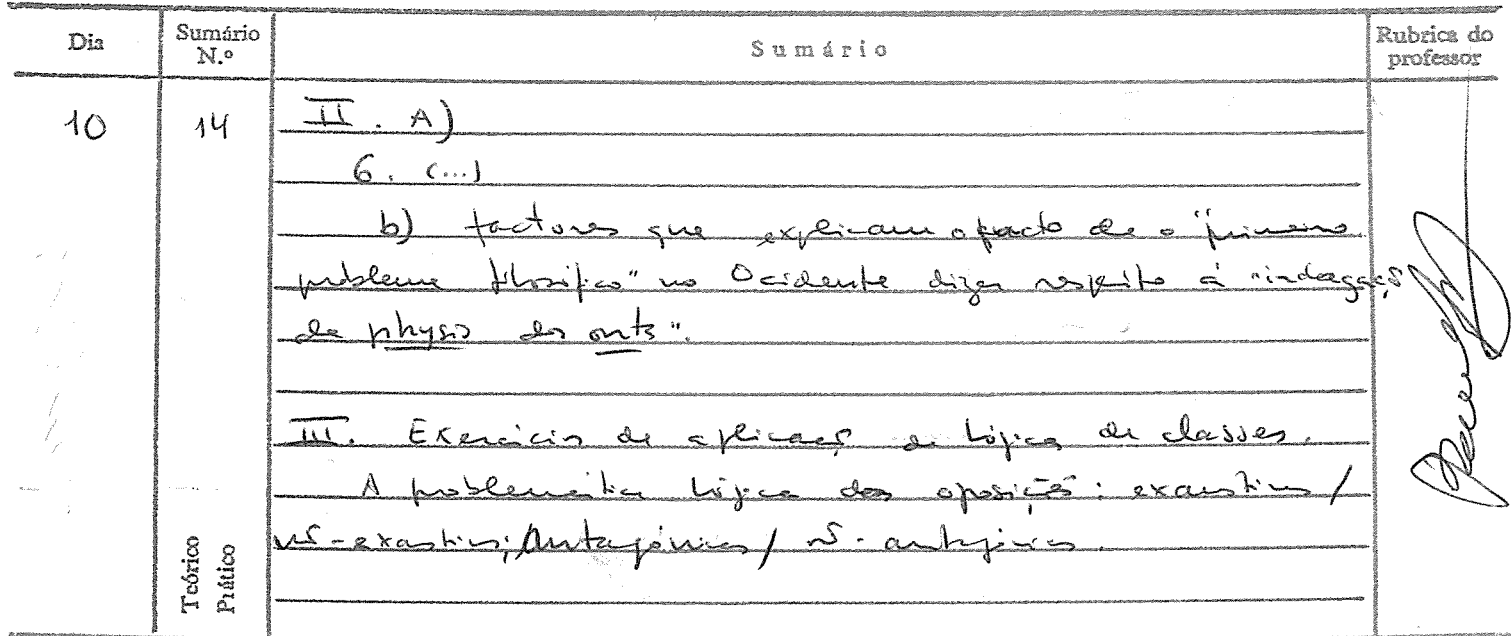 Dia
Sumário N.º
Sumário
Rubrica do professor
10
14
II. A)
6. (...)
b) factores que explicam o facto de o "primeiro
problema filosófico" no Ocidente dizer respeito à "indagação
da physis dos onta".
III. Exercícios de aplicação da Lógica de classes.
A problemática lógica das oposições: exaustivas /
não-exaustivas; Antagónicas / não-antagónicas.
Teórico
Prático